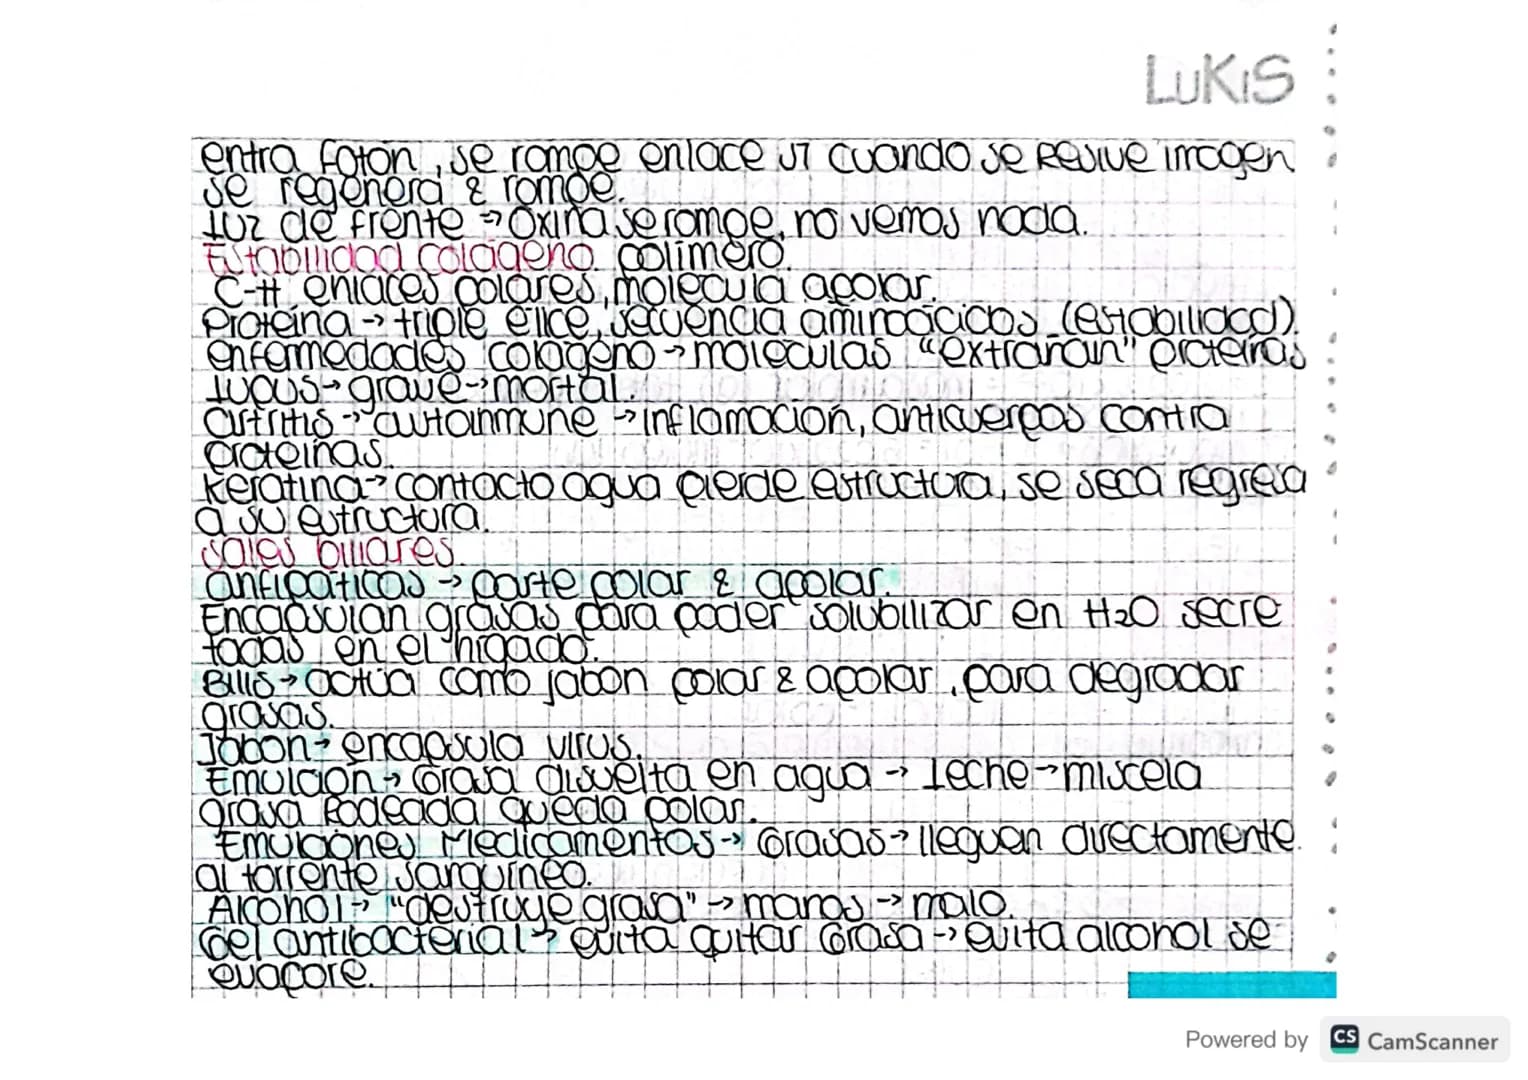 LUKIS
entra foton, se rompe enlace π cuando se REVIVE imagen
se regenera & rompe.
Luz de frente → Oxina se rompe, no vemos nada.
Estabilidad colágeno polímero.
C-H enlaces polares, molécula apolar.
Proteína → triple élice, secuencia aminoácidos (estabilidad).
enfermedades colágeno → moléculas "extrañan" proteínas
Lupus → grave → mortal.
Artritis → autoinmune → inflamación, anticuerpos contra
proteínas.
Keratina → contacto agua pierde estructura, se seca regresa
a su estructura.
Sales biliares.
Anfipáticas → parte polar & apolar.
Encapsulan grasas para poder solubilizar en H2O secre
tadas en el hígado.
Bilis → actúa como jabón polar & apolar, para degradar
grasas.
Jabón → encapsula virus.
Emulción → Grasa disuelta en agua → Leche → miscela
grasa Rodeada queda polar.
Emulciones Medicamentos → Grasas → lleguen directamente
al torrente sanguíneo.
Alcohol → "destruye grasa" → manos → malo.
Gel antibacterial → evita quitar Grasa → evita alcohol se
evapore.
Powered by CS CamScanner